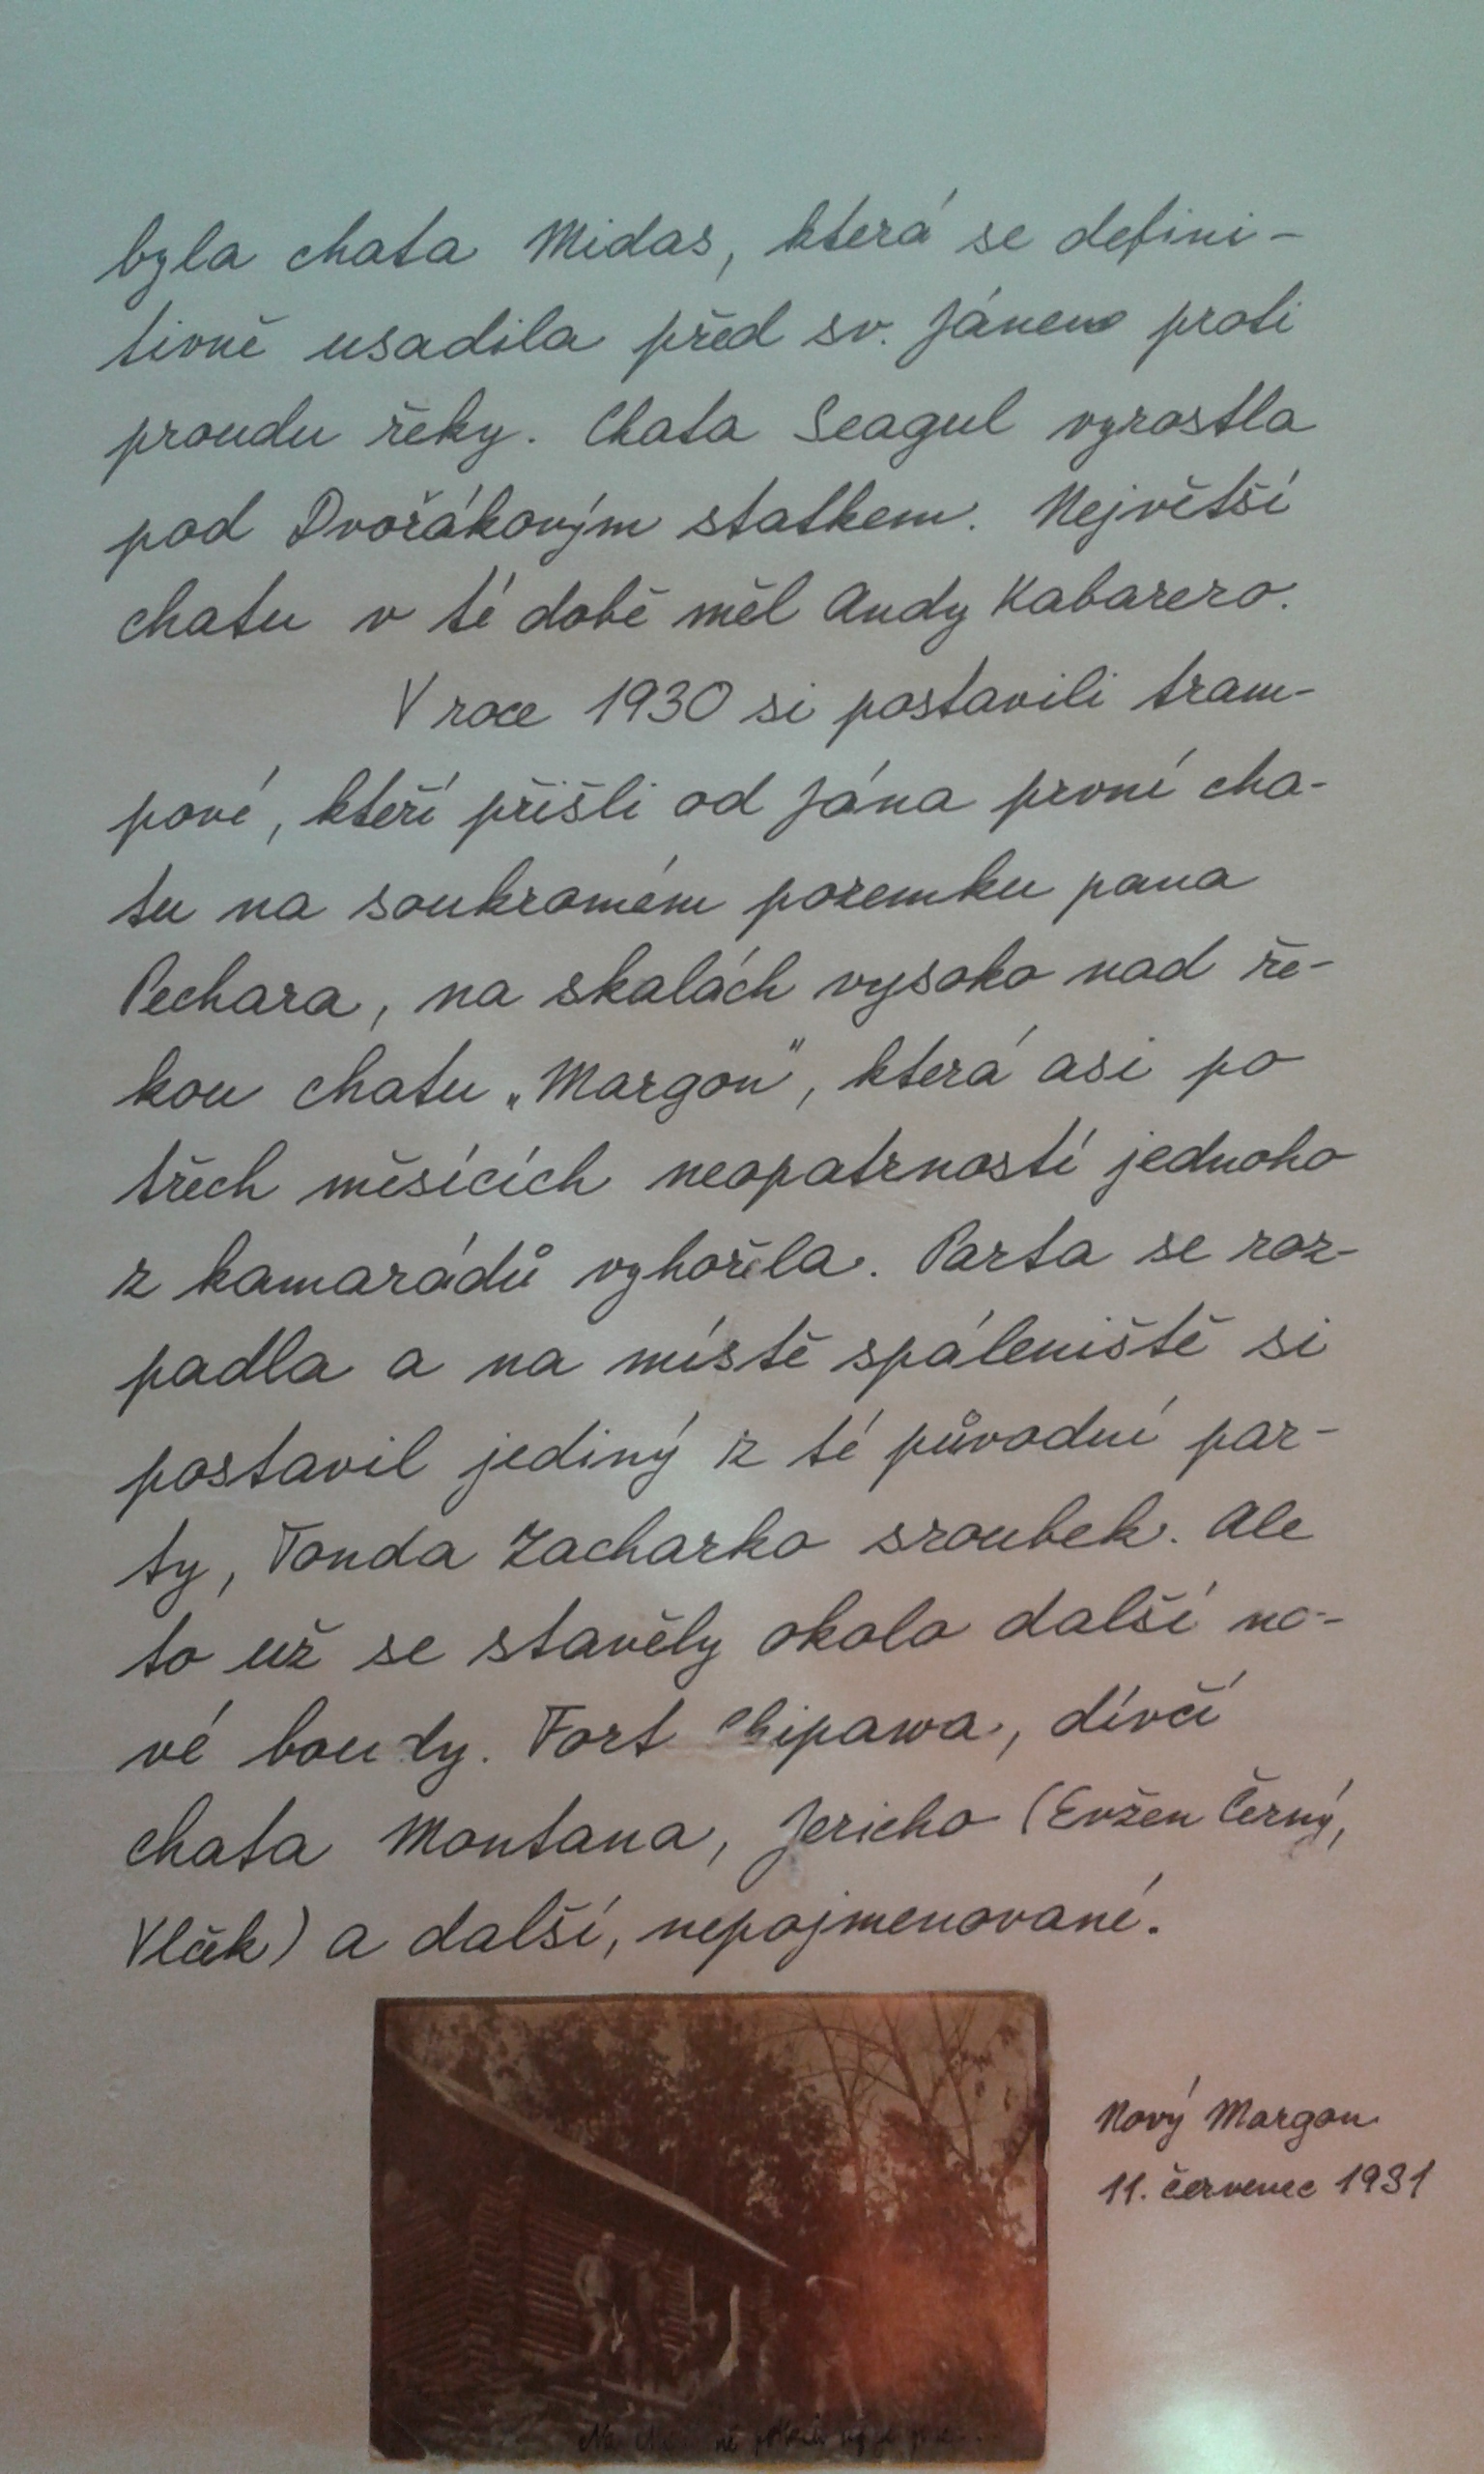 byla chata Midas, která se defini-
tivně usadila před sv. Jánem proti
proudu řeky. Chata Seagul vyrostla
pod Dvořákovým statkem. Největší
chatu v té době měl Andy Kabarero.
V roce 1930 si postavili tram-
pové, kteří přišli od Jána první cha-
tu na soukromém pozemku pana
Pechara, na skalách vysoko nad ře-
kou chatu „Margon", která asi po
třech měsících neopatrností jednoho
z kamarádů vyhořela. Parta se roz-
padla a na místě spáleniště si
postavil jediný z té původní par-
ty, Tonda Zacharko sroubek. Ale
to už se stavěly okolo další no-
vé boudy. Fort Chipawa, dívčí
chata Montana, Jericho (Evžen Černý,
Vlček) a další, nepojmenované.
Nový Margon
11. červenec 1931